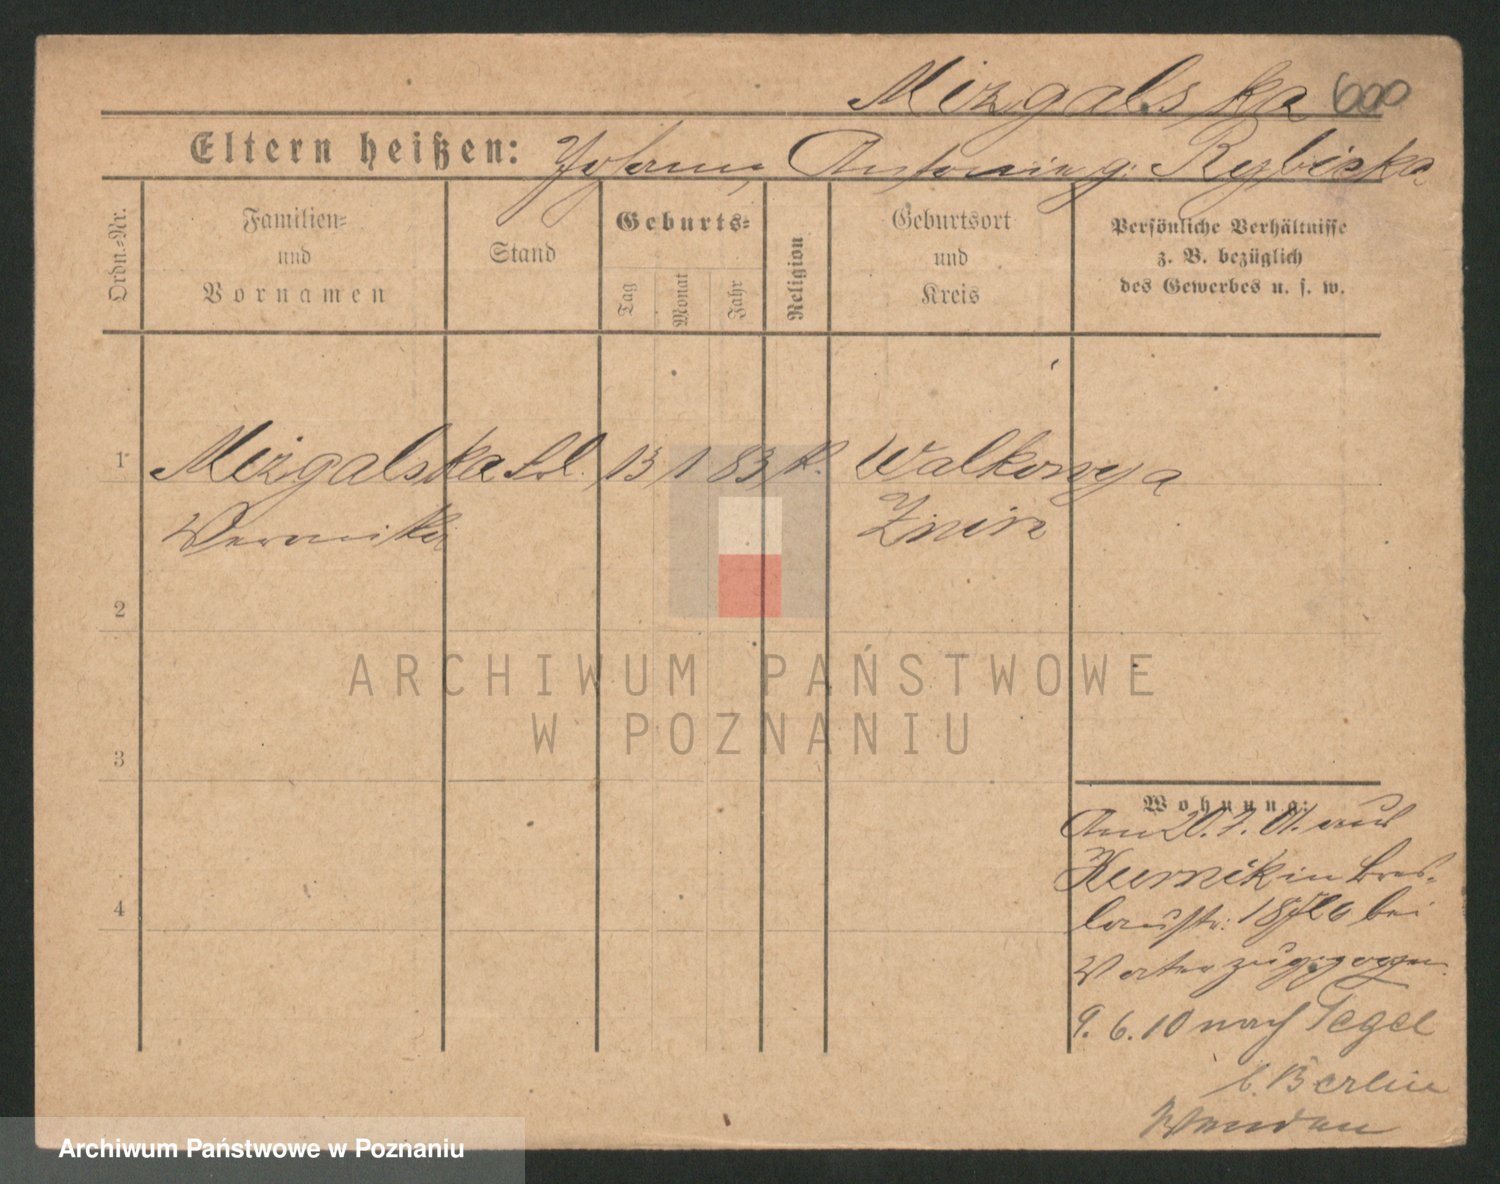 Mizgalska 600
Eltern heißen: Johann, Antonina g. Rybicka
Ordn.-Nr.
Familien-
und
Vornamen
Stand
Geburts-
Tag
Monat
Jahr
Religion
Geburtsort
und
Kreis
Persönliche Verhältnisse
z. B. bezüglich
des Gewerbes u. s. w.
1 Mizgalska Frl. 13 1 83 k. Walkowya
Veronika Znin
2
ARCHIWUM PAŃSTWOWE
W POZNANIU
3
Wohnung:
Am 20.7.01. aus
Kurnik in Bres-
lauerstr. bei
Vater zugezogen
4
9.6.10 nach Tegel
b. Berlin
Archiwum Państwowe w Poznaniu